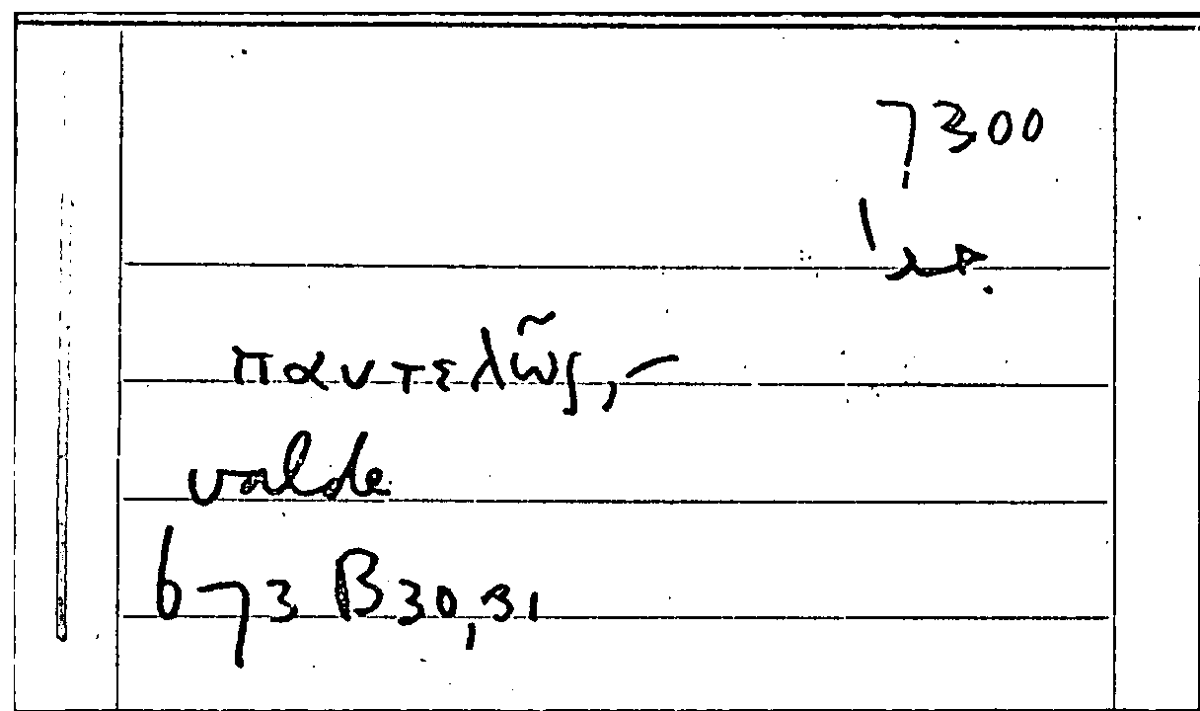 7300
παντελῶς,-
valde
673 B 30,31